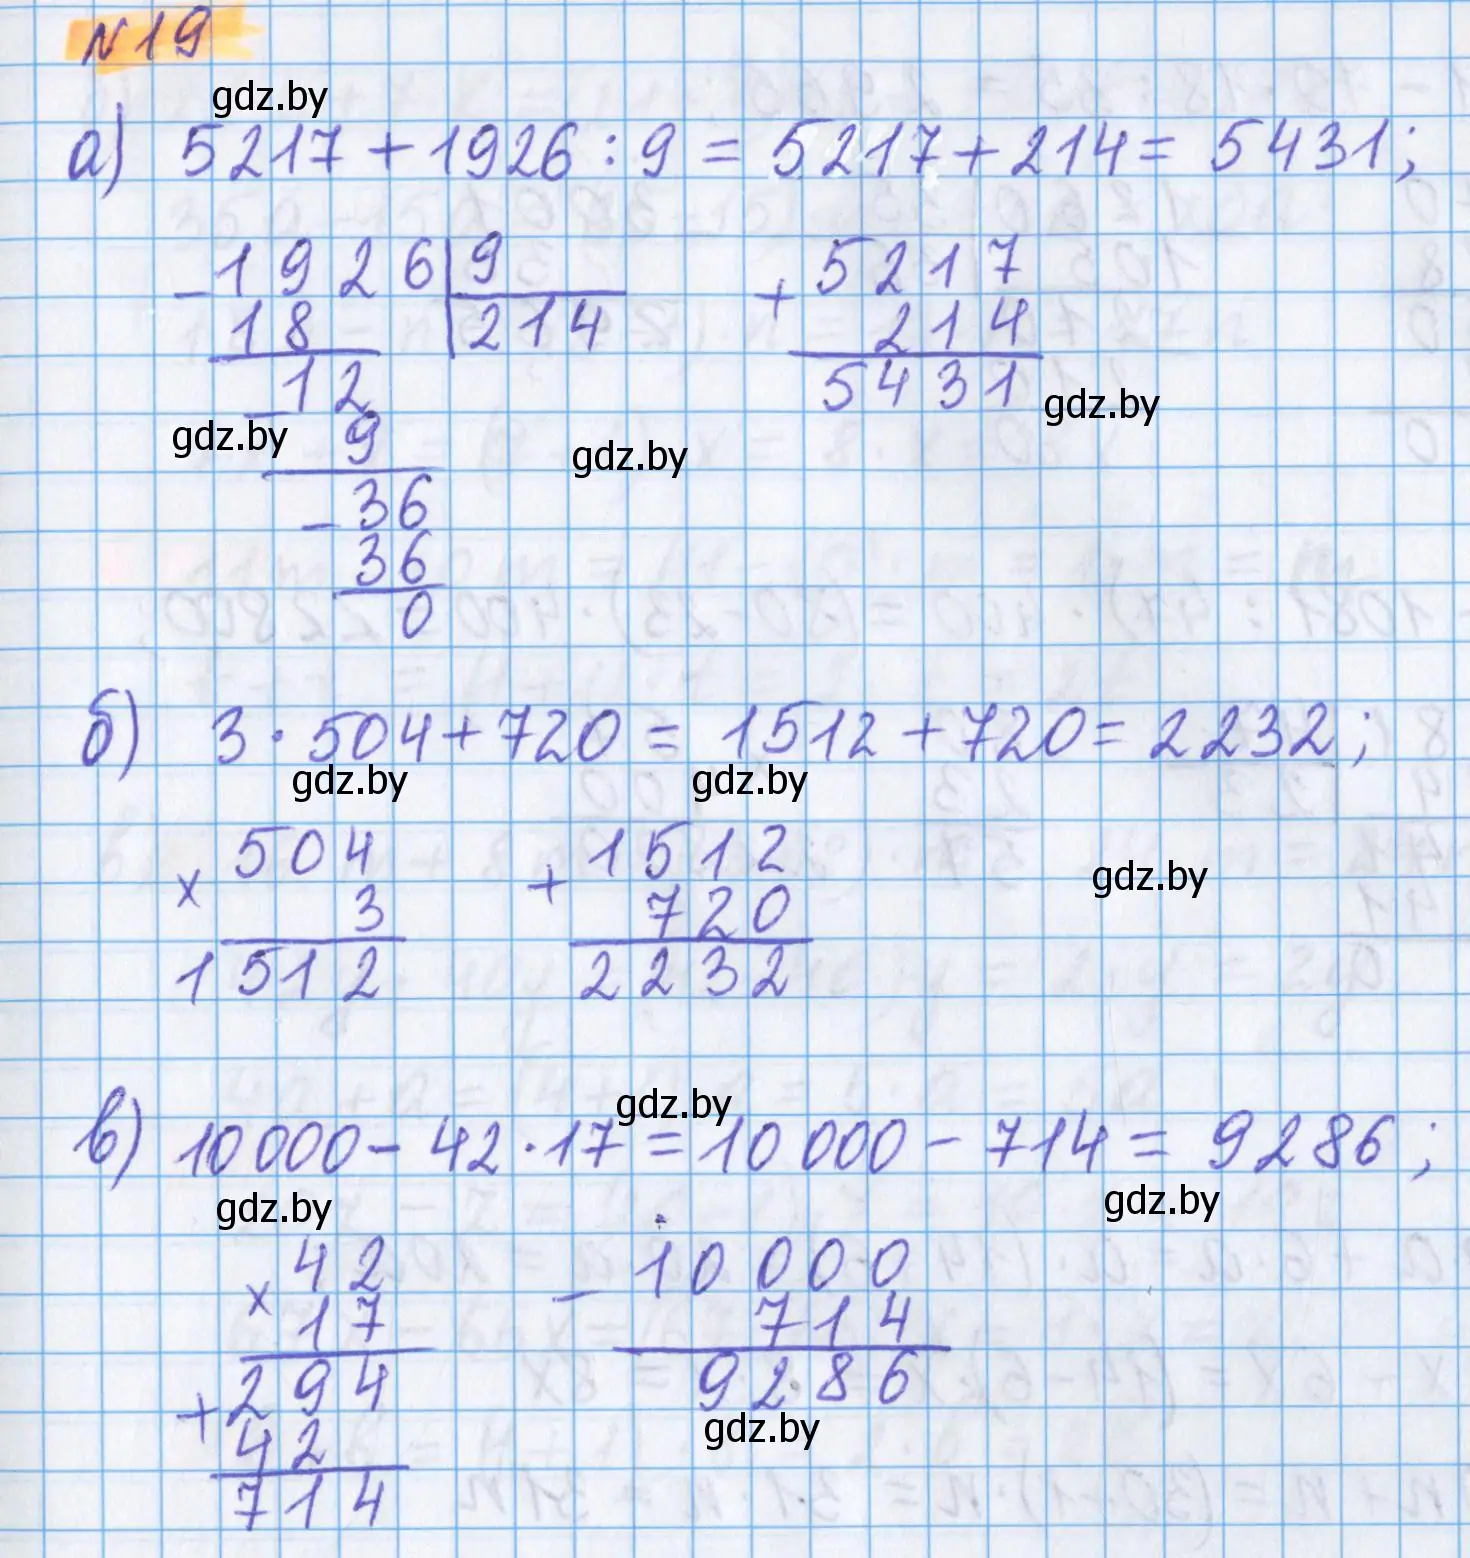 N19
gdz.by
а) 5217 + 1926 : 9 = 5217 + 214 = 5431;
- 1926 | 9
18 | 214
- 12
9
- 36
36
0
+ 5217
214
5431
gdz.by
gdz.by
gdz.by
б) 3 · 504 + 720 = 1512 + 720 = 2232;
gdz.by
gdz.by
× 504
3
1512
+ 1512
720
2232
gdz.by
gdz.by
в) 10 000 - 42 · 17 = 10 000 - 714 = 9286;
gdz.by
gdz.by
× 42
17
+ 294
42
714
- 10000
714
9286
gdz.by